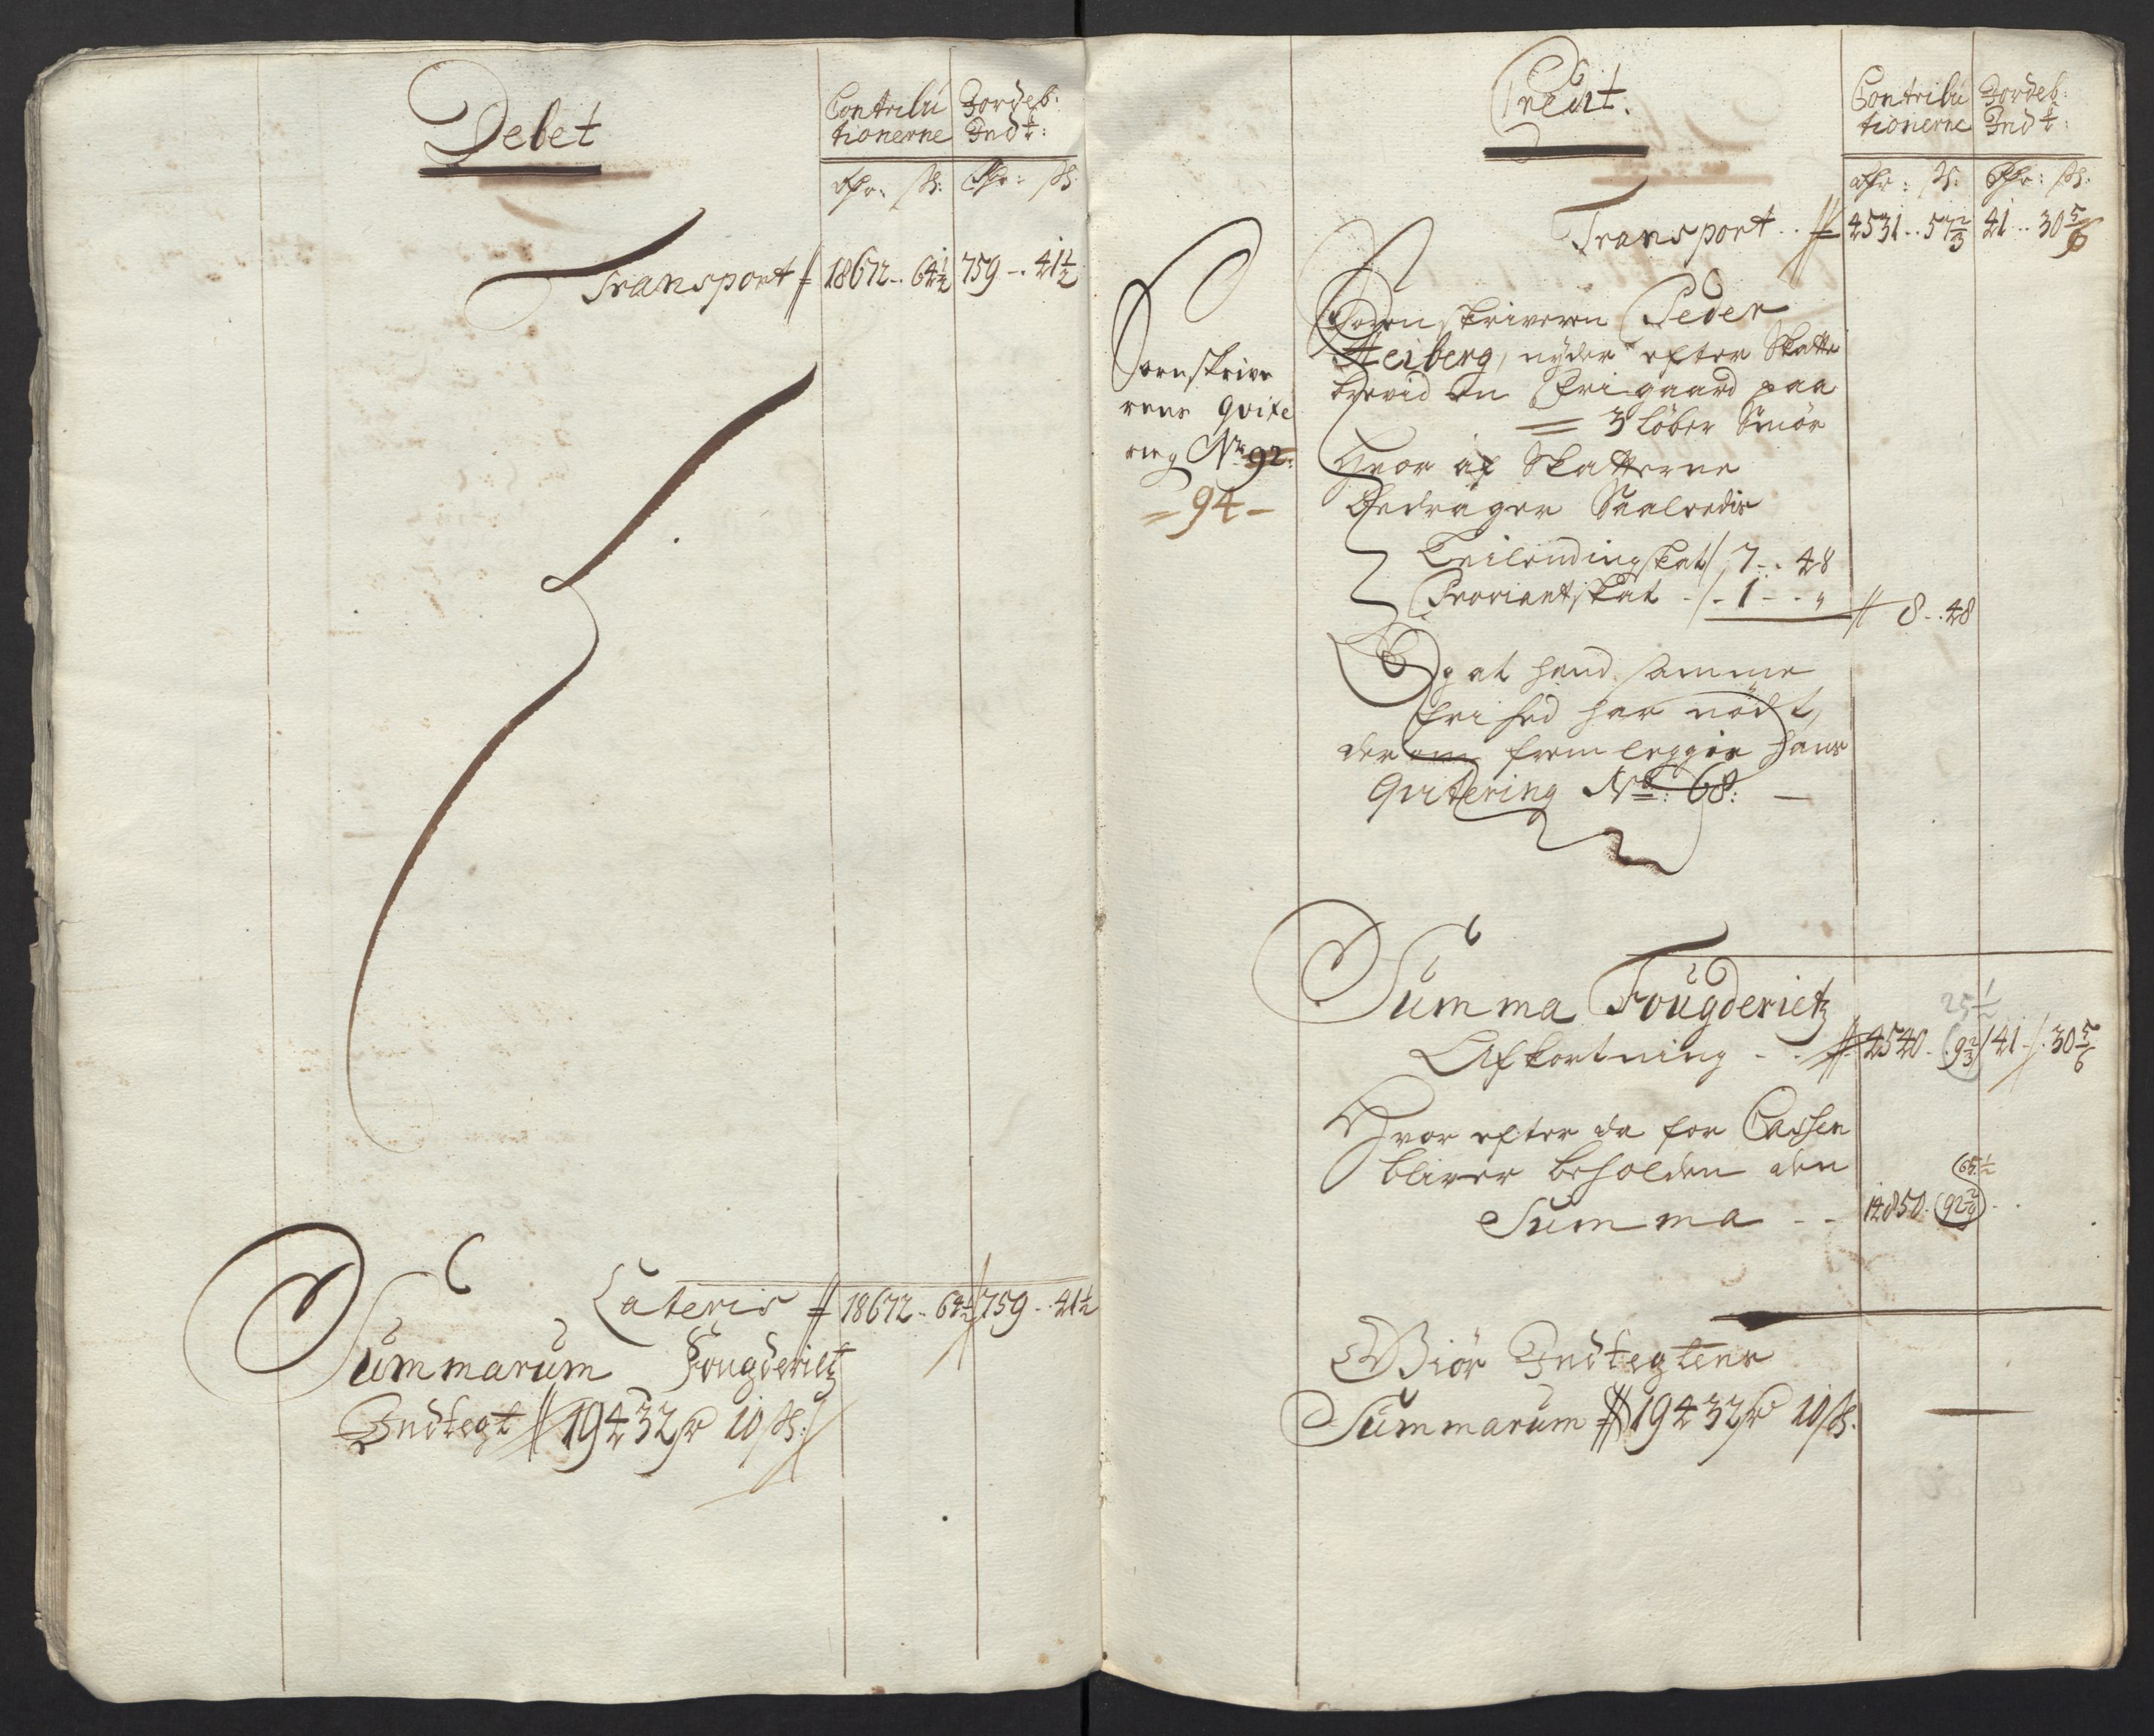 Debet
Contribu Jordeb:
tionerne Indt:
dhr: ß: Dhr: ß:
Transport 18672.. 64½ 759 .. 41½
Lateris 18672.. 64½ 759 .. 41½
Summarum Fougderietz
Indtegt 19432 10 ß:
Credit.
Contribu Jordeb:
tionerne Indt:
dhr: ß: Dhr: ß:
Transport .. 2531.. 57⅔ 41 .. 30⅚
Sorenskrive
rens qvite
ring No 92:
= 94 -
Sorenskriveren Peder
Heiberg, nyder efter Skatte
brevid en frigaard paa
= 3 Løber Smør
Hvor af Skatterne
bedrager Saaledis
Leilendingskat 7 .. 48
Proviantskat .. 1 .. " 8 .. 48
Og at hand samme
frihed har nødt,
derom fremlegges hans
Qvitering No: 68:
Summa Fougderietz
25½
Afkortning - . 2540 . 9⅔ 41 . 30⅚
Hvor efter da for Cassen
bliver beholden den
65½
Summa - - 12850 .
Giør Indtegtens
Summarum 19432 10 ß.